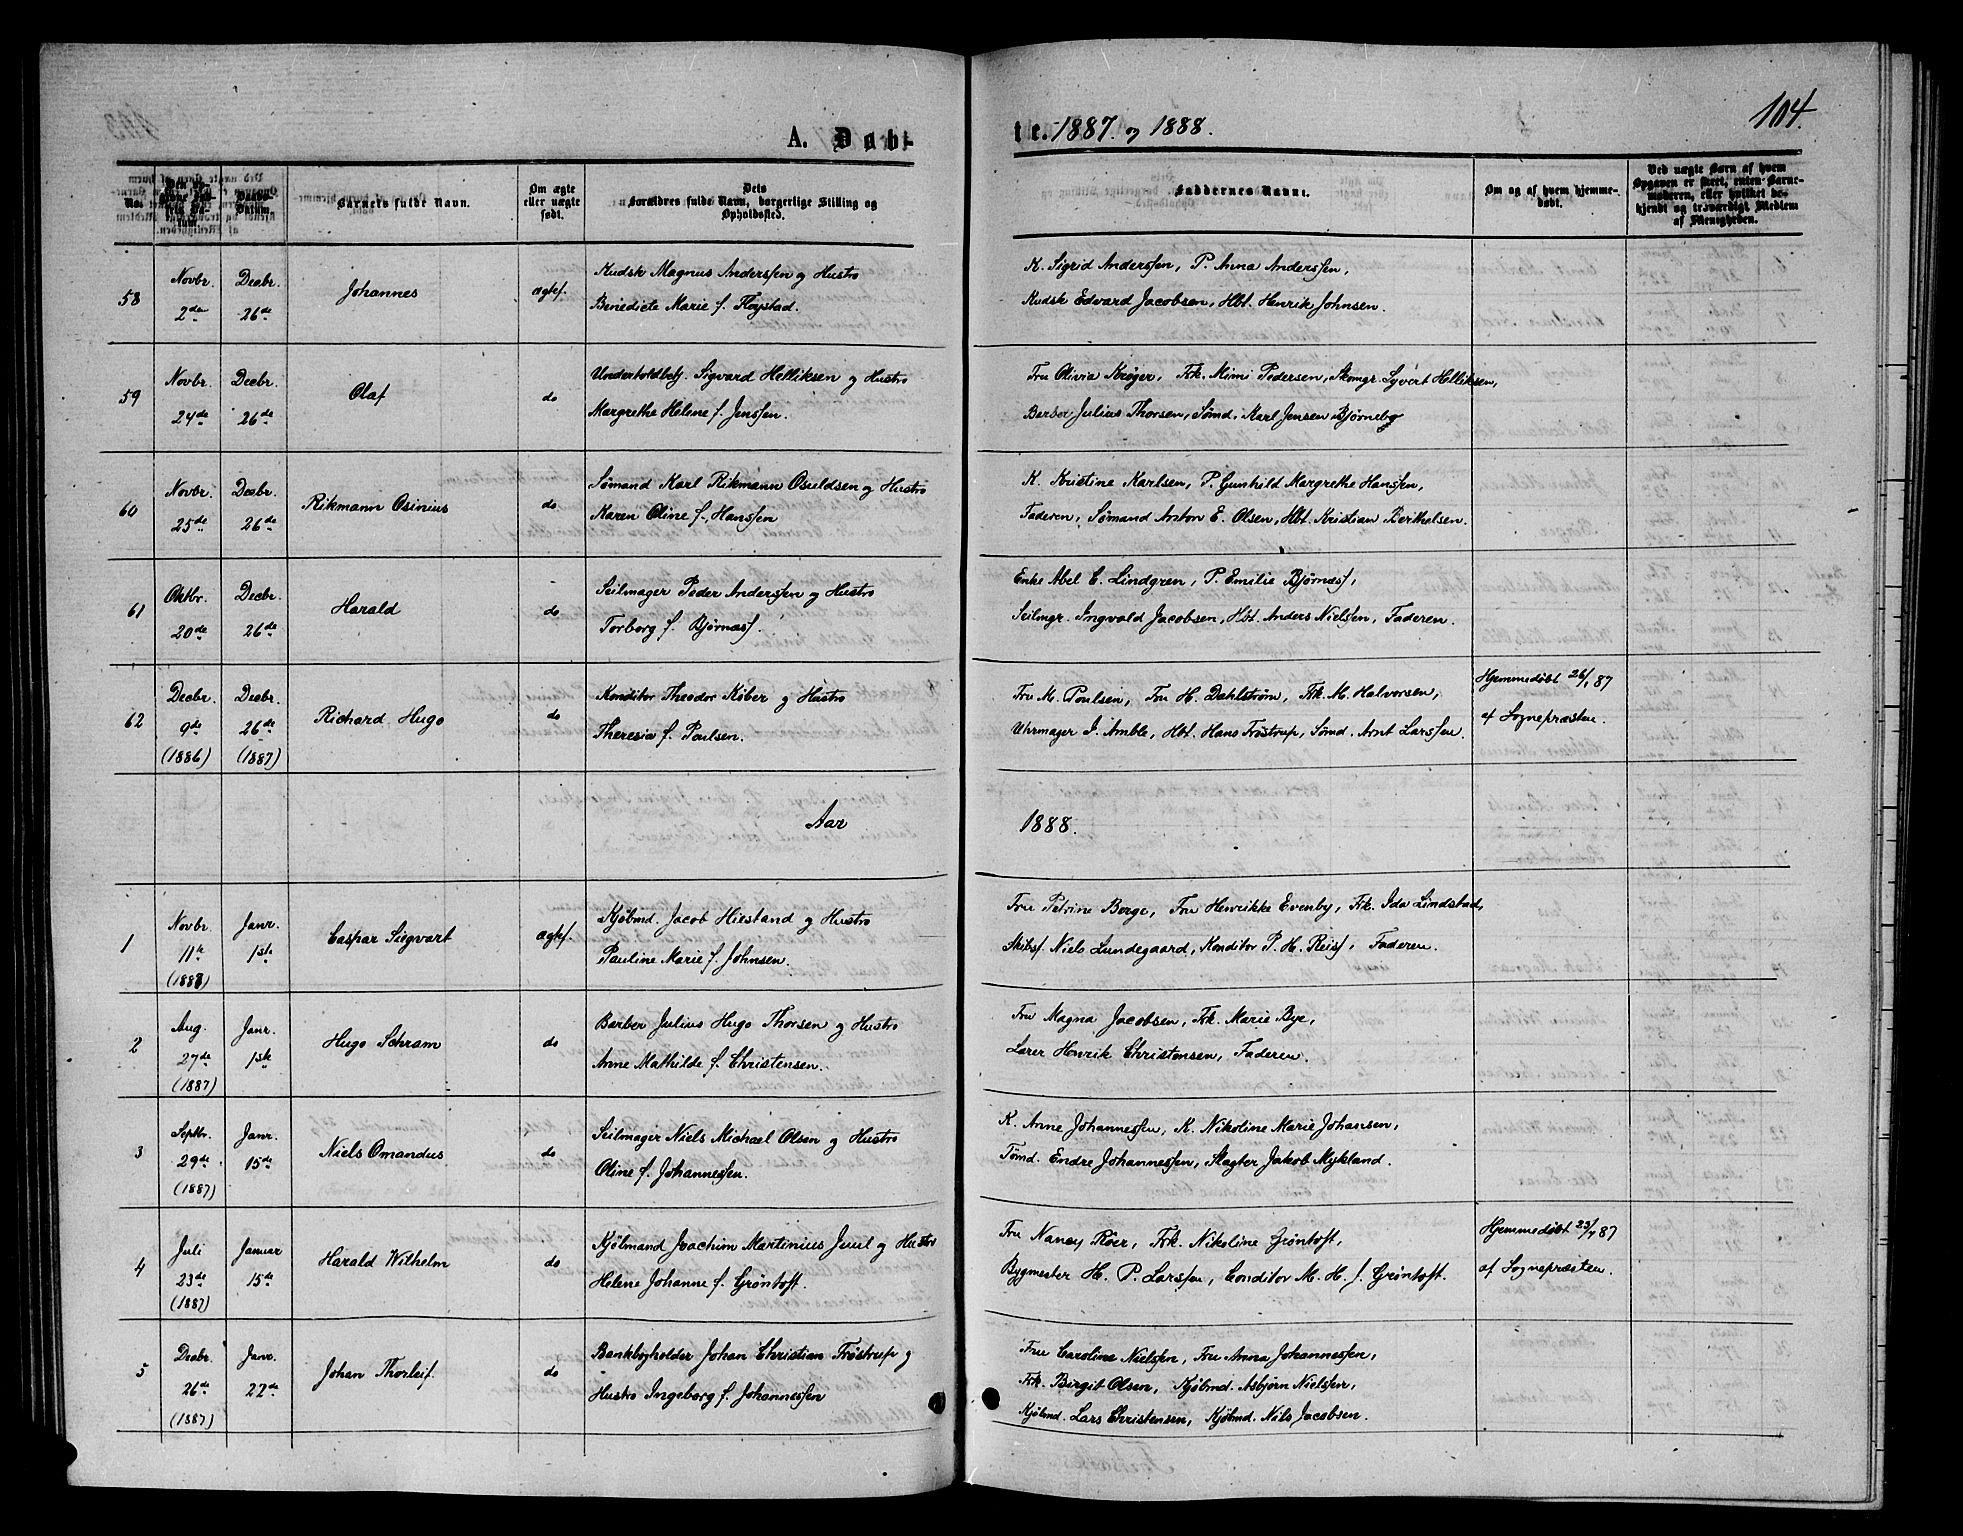 104.
A. Døbte. 1887. og 1888.
No.
Den opgivne Fødsels Datum.
Daabs-Datum.
Barnets fulde Navn.
Om ægte eller uægte født.
Dets Forældres fulde Navn, borgerlige Stilling og Opholdssted.
Faddernes Navne.
Om og af hvem hjemmedøbt.
Ved uægte Børn af hvem Opgaven er skeet, enten Barnemoderen, eller hvilket bekjendt og troværdigt Medlem af Menigheden.
58
Novbr. 2den
Decbr. 26de
Johannes
ægtef.
Kudsk Magnus Anderssen og Hustro
Benedicte Marie f. Fløystad.
K. Sigrid Anderssen, P. Anna Anderssen,
Kudsk Edvard Jacobsen, Hbt. Henrik Johnsen.
59
Novbr. 24de
Decbr. 26de
Olaf
do
Underholdbetj. Sigvard Helliksen og Hustro
Margrethe Helene f. Jenssen.
Fru Olivia Krøger, Frk. Mimi Pedersen, Skomgr Syvert Helliksen,
Barber Julius Thorsen, Sømd. Karl Jensen Bjørnebo
60
Novbr. 25de
Decbr. 26de
Rikmann Osinius
do
Sømand Karl Rikmann Osuldsen og Hustro
Karen Oline f. Hanssen
K. Kristine Karlsen, P. Gunhild Margrethe Hanssen,
Faderen, Sømand Anton E. Olsen, Hbt. Kristian Berthelsen.
61
Oktbr. 20de
Decbr. 26de
Harald
do
Seilmager Peder Anderssen og Hustro
Torborg f. Bjørnæss.
Enke Abel C. Lindgren, P. Emilie Bjørnæss,
Seilmgr. Ingvald Jacobsen, Hbt. Anders Nielssen, Faderen.
62
Decbr. 9de (1886)
Decbr. 26de (1887)
Richard Hugo
do
Konditor Theodor Køber og Hustro
Theresia f. Poulsen.
Fru M. Poulsen, Fru H. Dahlstrøm, Frk. M. Halvorsen,
Uhrmager J. Amble, Hbt. Hans Trøstrup, Sømd. Arnt Larssen.
Hjemmedøbt 26/1 87
af Sognepræsten.
Aar 1888.
1
Novbr. 11te
Janr. 1ste
Caspar Siegvart
ægtef.
Kjøbmd. Jacob Hiestand og Hustro
Pauline Marie f. Johnsen.
Fru Petrine Berge, Fru Henrikke Evenby, Frk. Ida Lindstad,
Skibsf. Niels Lundegaard, Konditor P. H. Reiss, Faderen.
2
Aug. 27de (1887)
Janr. 1ste
Hugo Schram
do
Barber Julius Hugo Thorsen og Hustro
Anne Mathilde f. Christensen.
Fru Magna Jacobsen, Frk. Marie Bye,
Lærer Henrik Christensen, Faderen.
3
Septbr. 29de (1887)
Janr. 15de
Niels Omandus
do
Seilmager Niels Michael Olsen og Hustro
Oline f. Johannessen.
K. Anne Johannessen, K. Nikoline Marie Johansen,
Tømd. Endre Johannessen, Slagter Jakob Mykland.
4
Juli 23de (1887)
Januar 15de
Harald Wilhelm
do
Kjøbmand Joachim Martinius Juul og Hustro
Helene Johanne f. Grøntoft.
Fru Nancy Röer, Frk. Nikoline Grøntoft,
Bygmester H. P. Larssen, Conditor M. H. J. Grøntoft.
Hjemmedøbt 23/7 87
af Sognepræsten.
5
Decbr. 26de (1887)
Janr. 22de
Johan Thorleif.
do
Bankbogholder Johan Christian Trøstrup og
Hustro Ingeborg f. Johannessen
Fru Caroline Nielssen, Fru Anna Johannessen,
Frk. Birgit Olsen, Kjøbmd. Asbjørn Nielssen,
Kjøbmd. Lars Christensen, Kjøbmd. Nils Jacobsen.